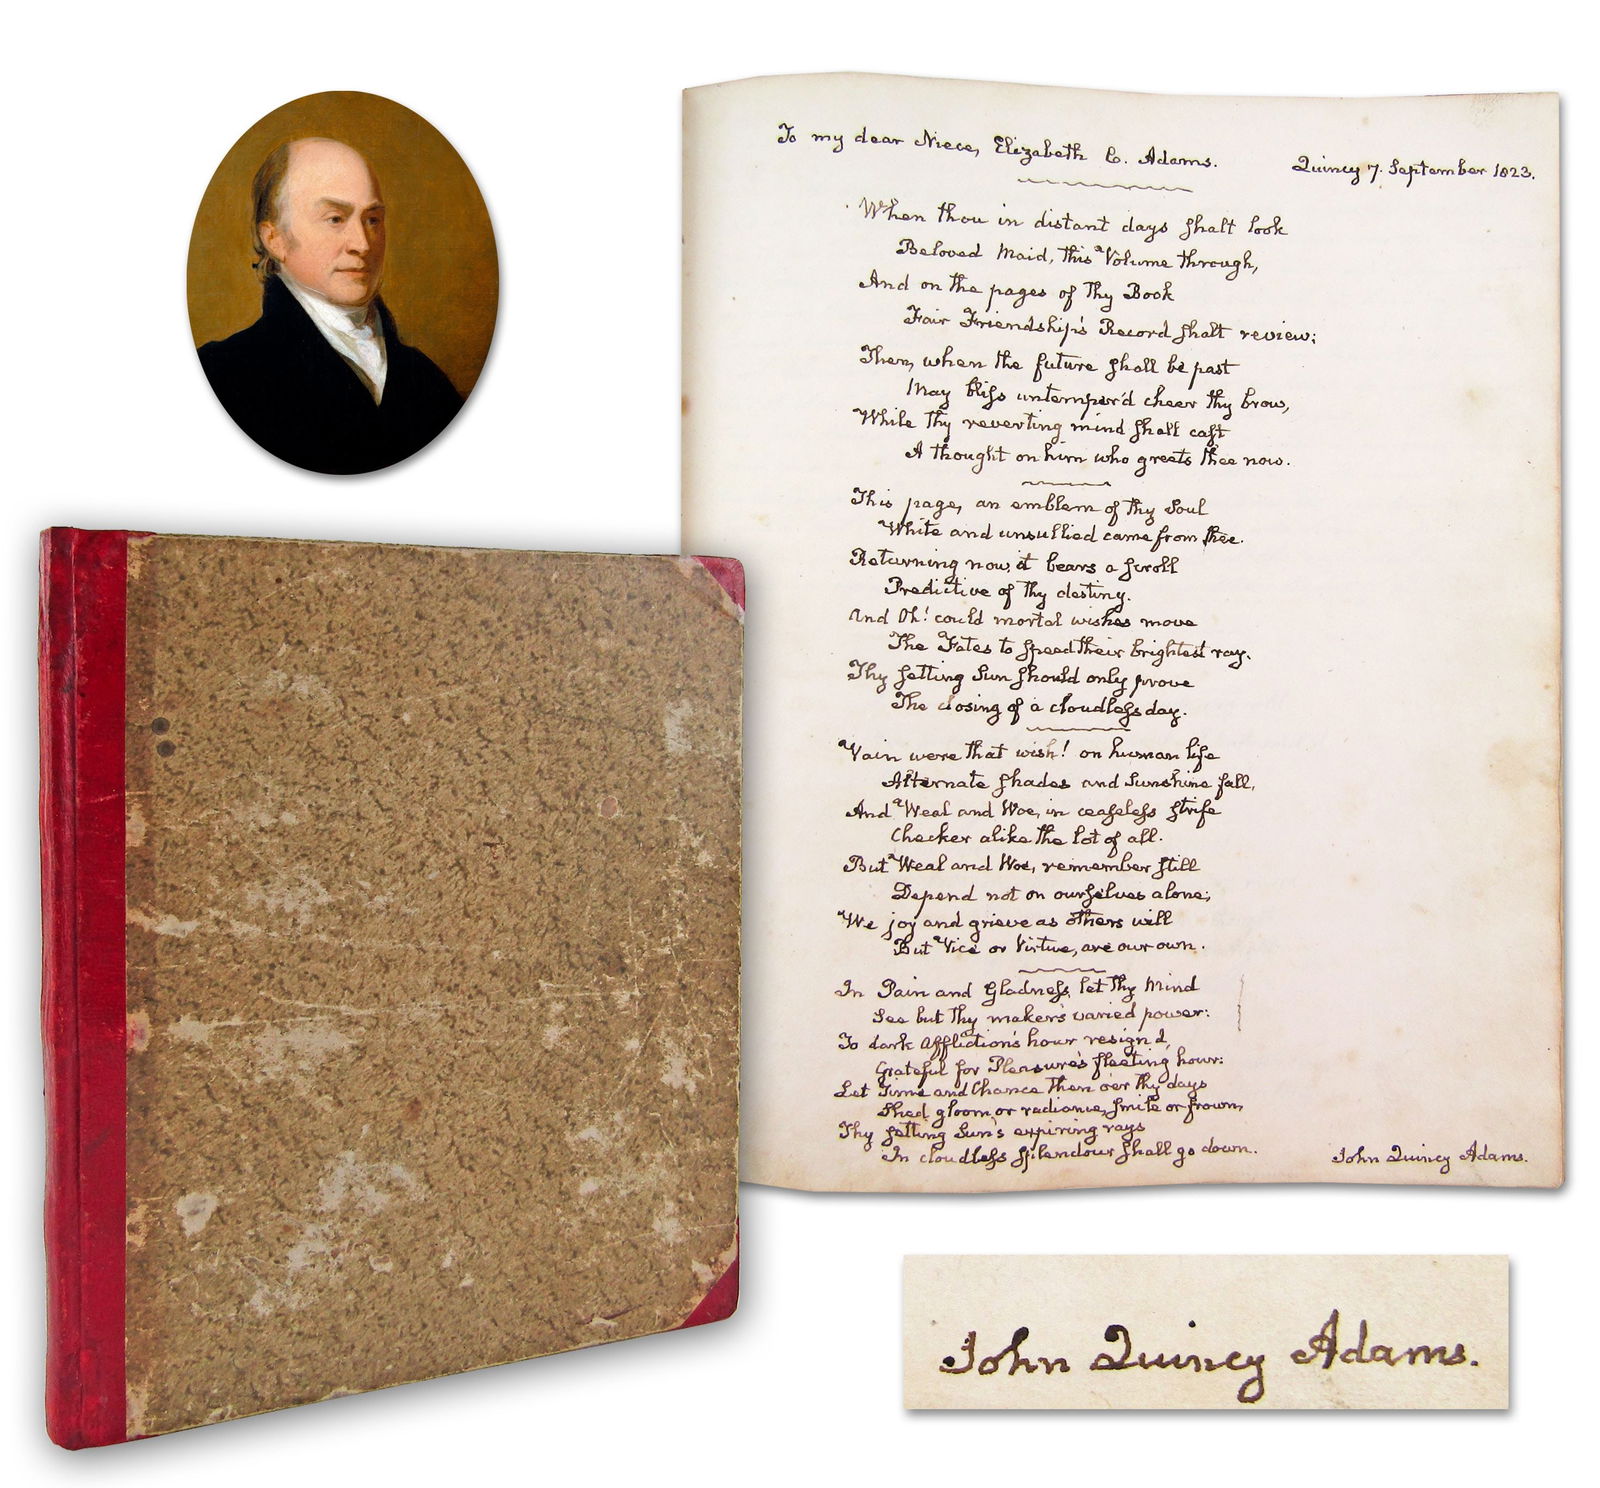 To my dear Niece, Elizabeth C. Adams.
Quincy 7. September 1823.
When thou in distant days shalt look
Beloved Maid, this Volume through,
And on the pages of thy Book
Fair Friendship's Record shalt review;
Then, when the future shall be past
May bliss untemper'd cheer thy brow,
While thy reverting mind shall cast
A thought on him who greets thee now.
This page, an emblem of thy Soul
White and unsullied came from thee.
Returning now, it bears a scroll
Predictive of thy destiny.
And Oh! could mortal wishes move
The Fates to speed their brightest ray,
Thy setting Sun should only prove
The closing of a cloudless day.
Vain were that wish! on human life
Alternate shades and Sunshine fall,
And Weal and Woe, in ceaseless strife
Checker alike the lot of all.
But Weal and Woe, remember still
Depend not on ourselves alone;
We joy and grieve as others will
But Vice or Virtue, are our own.
In Pain and Gladness, let thy Mind
See but thy maker's varied power:
To dark Affliction's hour resign'd,
Grateful for Pleasure's fleeting hour:
Let Time and Chance then o'er thy days
Shed gloom or radiance, smile or frown,
Thy setting Sun's expiring rays
In cloudless splendour shall go down.
John Quincy Adams.
John Quincy Adams.